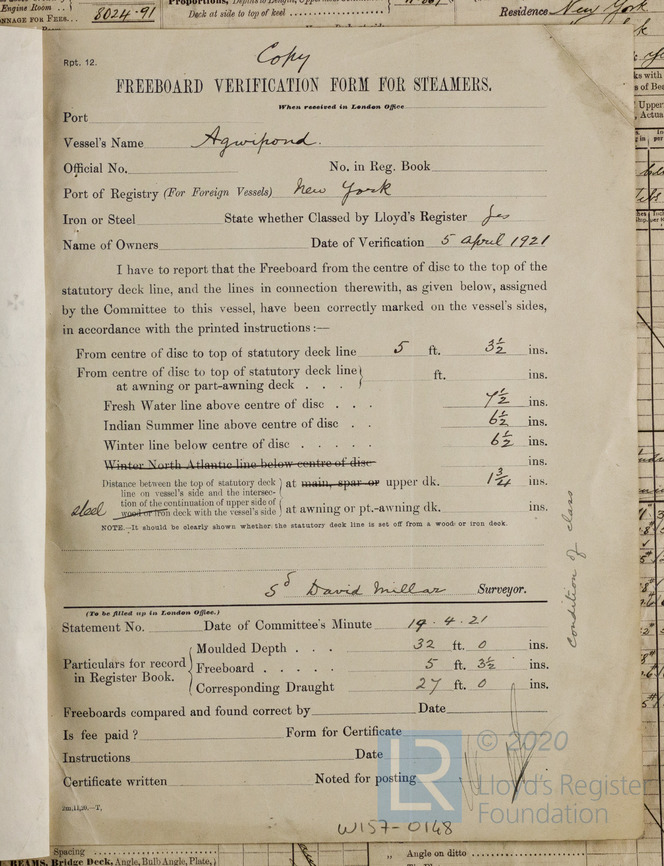 8024.91
Engine Room
Deck at side to top of keel
Residence New York
Copy
Rpt. 12.
FREEBOARD VERIFICATION FORM FOR STEAMERS.
When received in London Office
Port
Vessel's Name Agwipond.
Official No. No. in Reg. Book
Port of Registry (For Foreign Vessels) New York
Iron or Steel State whether Classed by Lloyd's Register Yes
Name of Owners Date of Verification 5 April 1921
I have to report that the Freeboard from the centre of disc to the top of the
statutory deck line, and the lines in connection therewith, as given below, assigned
by the Committee to this vessel, have been correctly marked on the vessel's sides,
in accordance with the printed instructions :—
From centre of disc to top of statutory deck line 5 ft. 3½ ins.
From centre of disc to top of statutory deck line
at awning or part-awning deck . . . ft. ins.
Fresh Water line above centre of disc . . . 7½ ins.
Indian Summer line above centre of disc . . 6½ ins.
Winter line below centre of disc . . . . . 6½ ins.
Winter North Atlantic line below centre of disc ins.
Distance between the top of statutory deck
line on vessel's side and the intersec-
tion of the continuation of upper side of
steel wood or iron deck with the vessel's side
at main, spar or upper dk. 1¾ ins.
at awning or pt.-awning dk. ins.
NOTE.—It should be clearly shown whether the statutory deck line is set off from a wood or iron deck.
Condition of class
Sd David Millar Surveyor.
(To be filled up in London Office.)
Statement No. Date of Committee's Minute 14.4.21
Particulars for record
in Register Book.
Moulded Depth . . . 32 ft. 0 ins.
Freeboard . . . . . 5 ft. 3½ ins.
Corresponding Draught 27 ft. 0 ins.
Freeboards compared and found correct by Date
Is fee paid ? Form for Certificate
Instructions Date
Certificate written Noted for posting
2m,11,20.—T.
LR © 2020
Lloyd's Register
Foundation
W157-0148
Spacing
BEAMS, Bridge Deck, Angle, Bulb Angle, Plate,
Angle on ditto